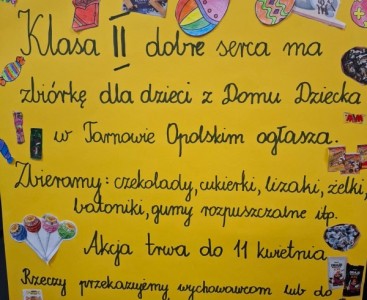 Klasa II dobre serca ma
zbiórkę dla dzieci z Domu Dziecka
w Tarnowie Opolskim ogłasza.
Zbieramy: czekolady, cukierki, lizaki, żelki,
batoniki, gumy rozpuszczalne itp.
Akcja trwa do 11 kwietnia
Rzeczy przekazujemy wychowawcom lub do